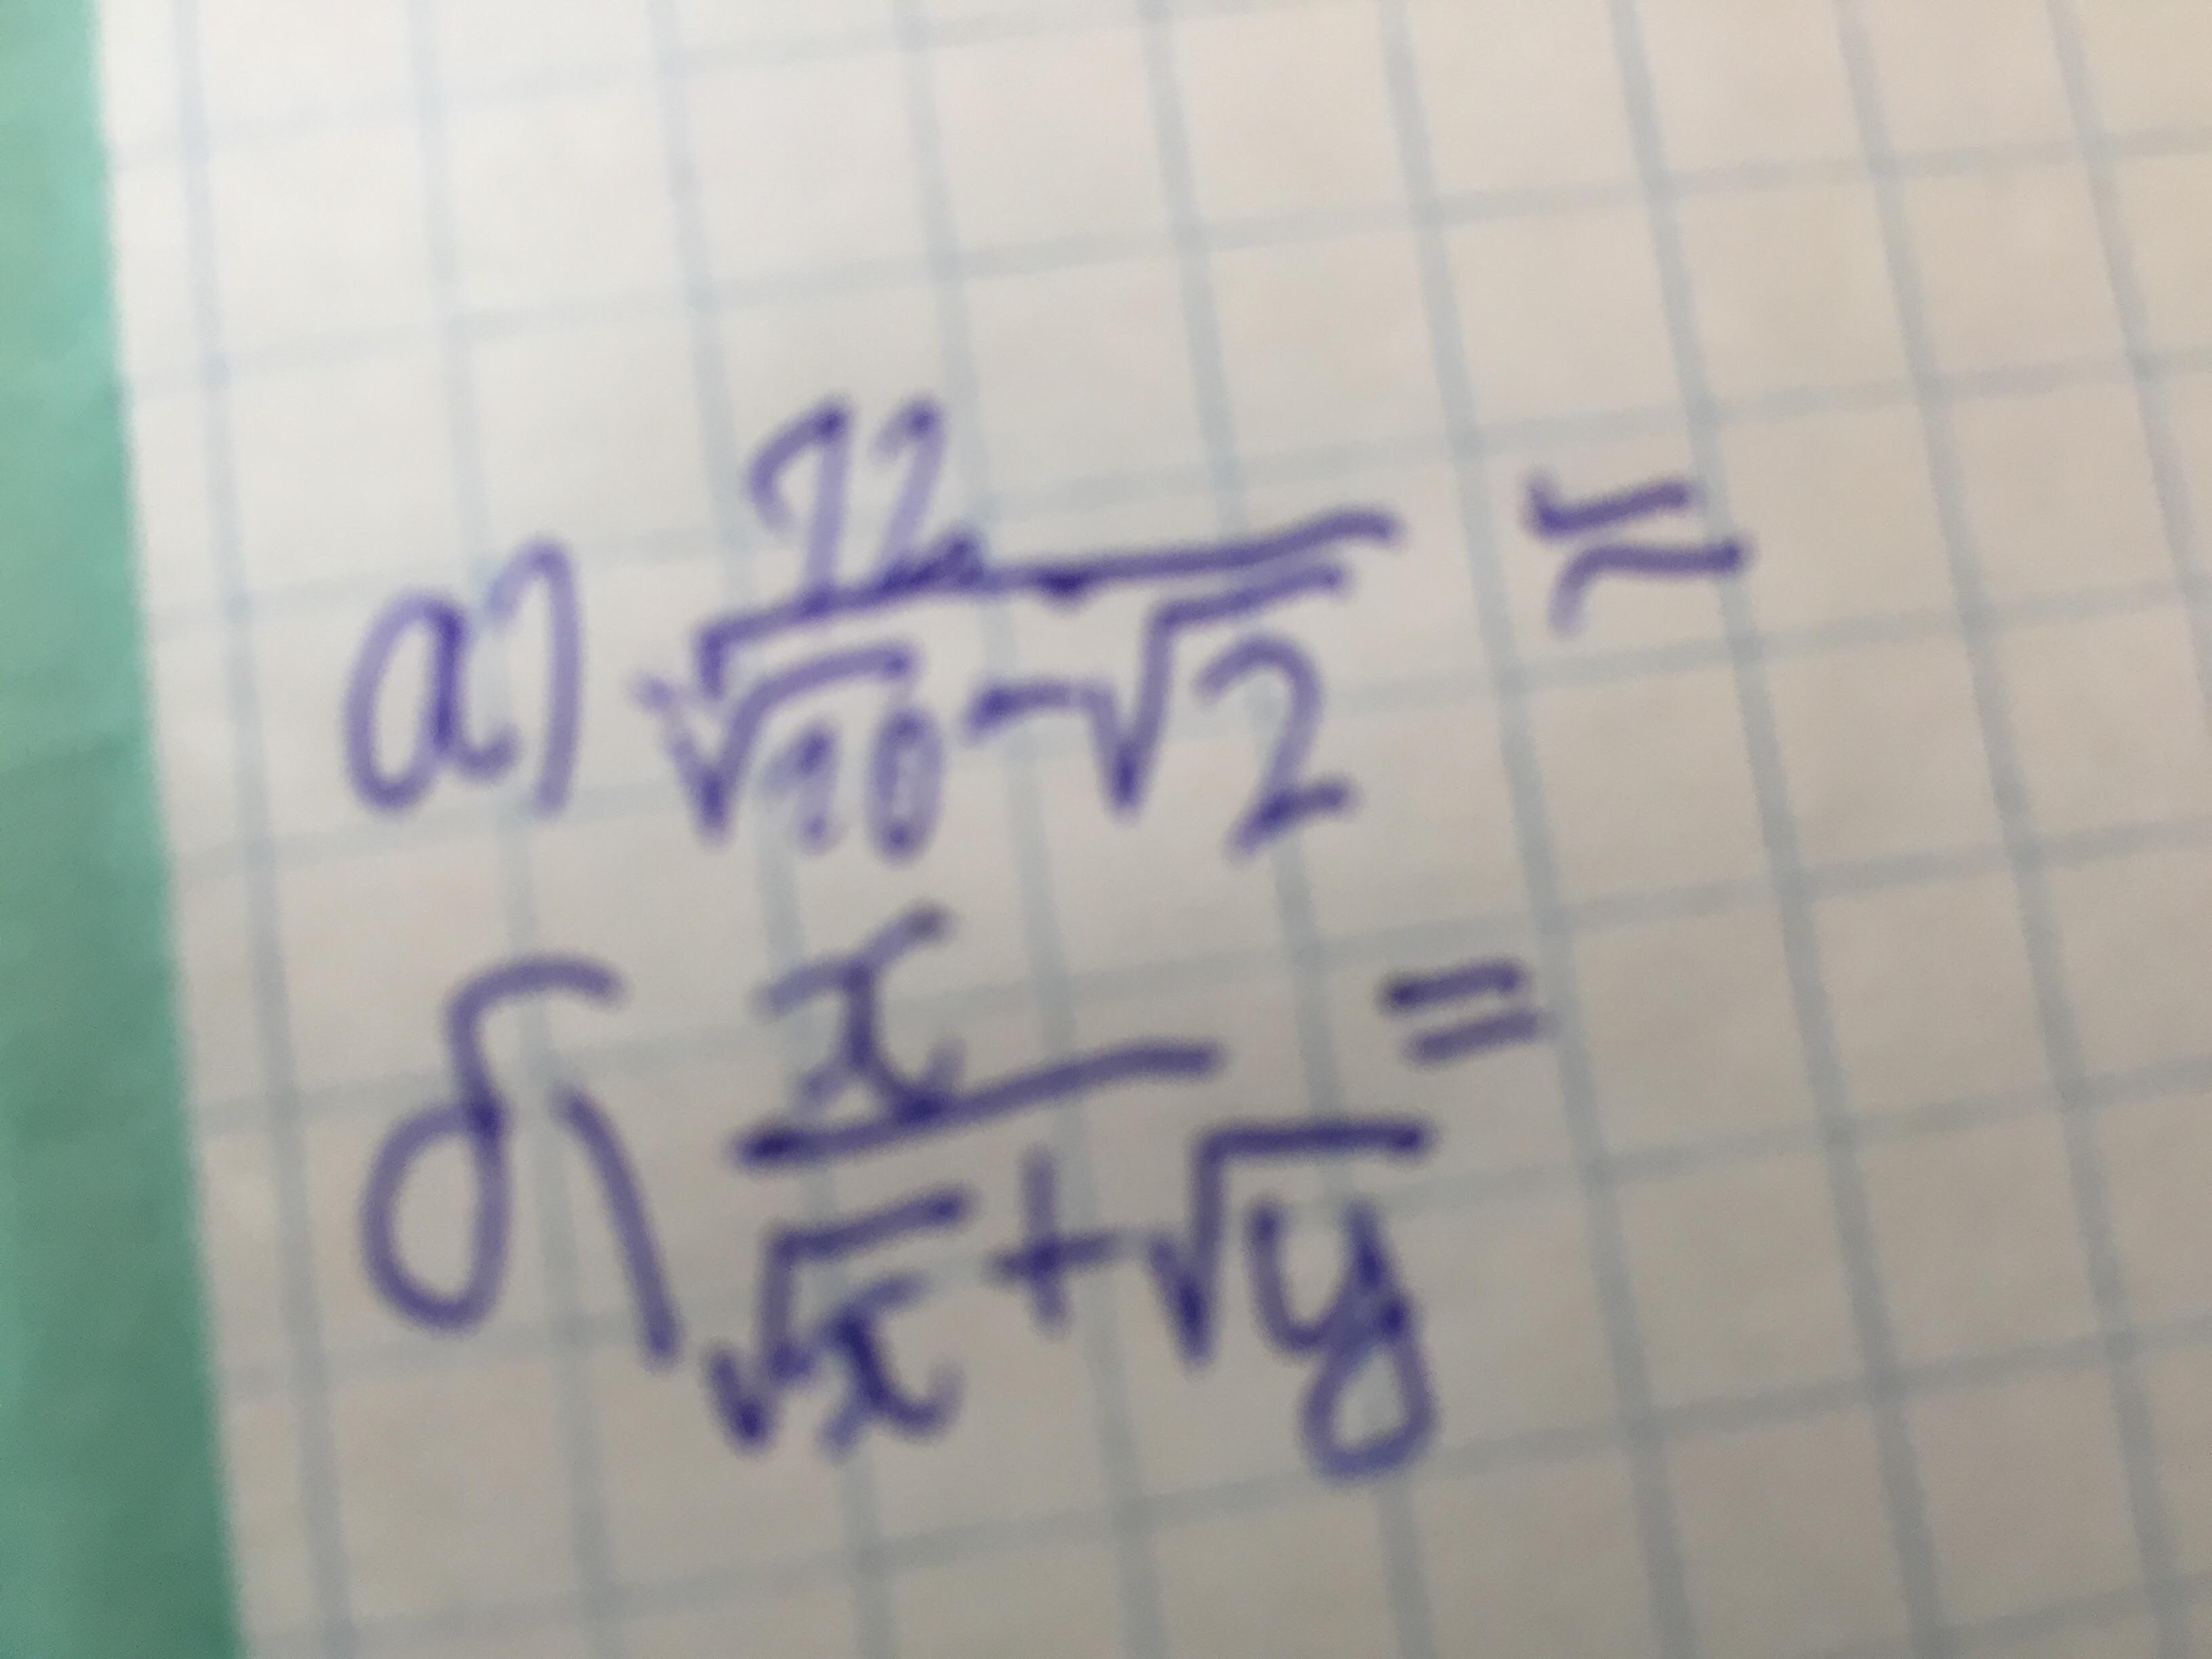 а) 12/(√10-√2) =
б) x/(√x+√y) =